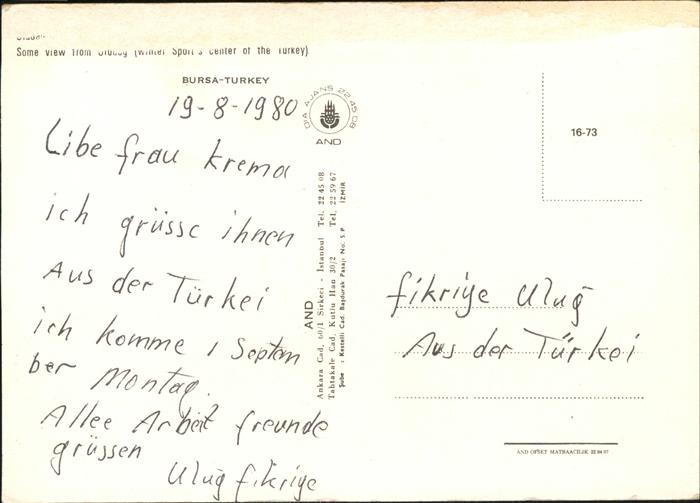 Some view from Uludağ (winter Sport's center of the Turkey)
BURSA-TURKEY
19-8-1980
Libe frau krema
ich grüsse ihnen
Aus der Türkei
ich komme 1 Septem
ber Montag.
Allee Arbeit freunde
grüssen
Uluğ fikriye
DİA AJANS 22 45 08
AND
AND
Ankara Cad. 60/1 Sirkeci - İstanbul Tel. 22 45 08
Tahtakale Cad. Kutlu Han 30/2 Tel. 22 59 67
Şube : Kestelli Cad. Başdurak Pasajı No: 5 P İZMİR
16-73
fikriye Uluğ
Aus der Türkei
AND OFSET MATBAACILIK 22 84 07